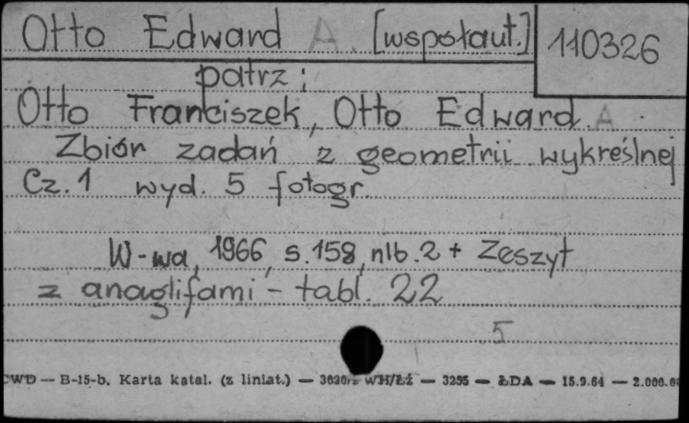 Otto Edward A. [wspołaut.] 110326
patrz:
Otto Franciszek, Otto Edward A.
Zbiór zadań z geometrii wykreślnej
Cz. 1 wyd. 5 fotogr.
W-wa, 1966, s. 158, nlb. 2 + Zeszyt
z anaglifami - tabl. 22
5
CWD — B-15-b. Karta katal. (z liniat.) — WH/Łź — 3255 — ŁDA — 15.9.64 — 2.000.00